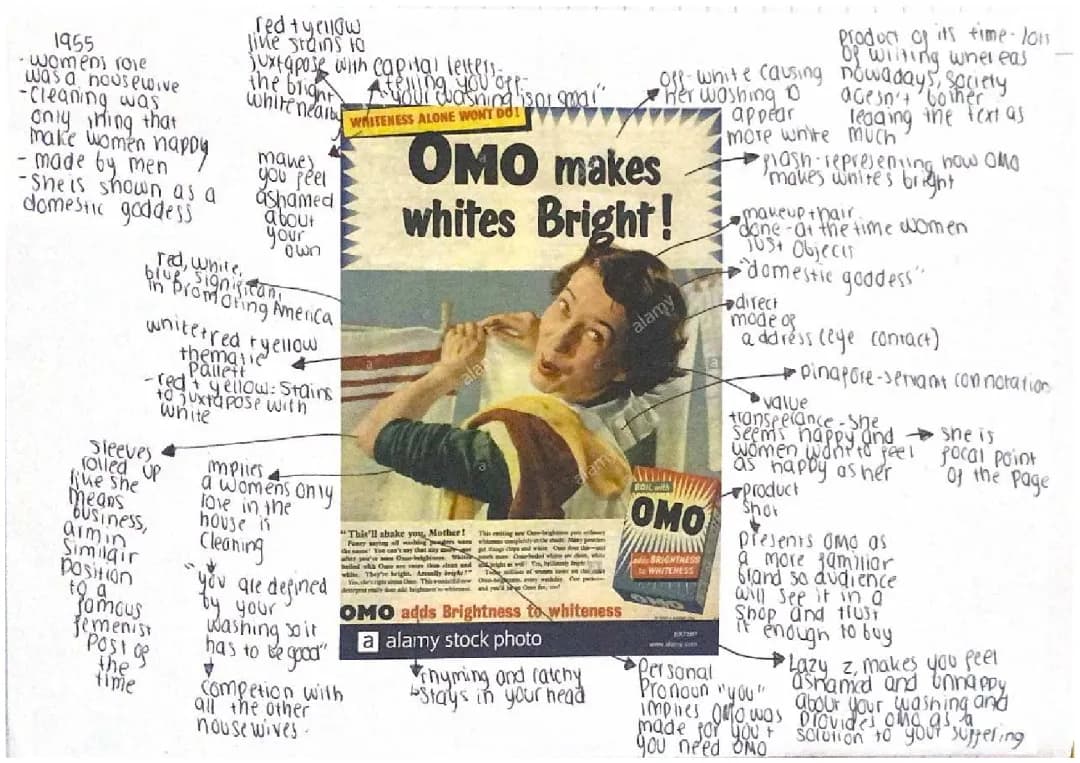 1955
- womens role
was a housewive
- Cleaning was
only thing that
make women happy
- made by men
- She is shown as a
domestic goddess
red + yellow
like stains to
juxtapose with
the bright
white nearby
capital letters-
telling you off-
"your washing isnt good"
makes
you feel
ashamed
about
your
own
off-white causing
her washing to
appear
more white
product of its time - lots
of writing whereas
nowadays, society
doesn't bother
reading the text as
much
flash- representing how OMO
makes whites bright
makeup + hair
done - at the time women
just objects
"domestic goddess"
direct
mode of
address (eye contact)
pinafore - servant connotation
value
transferance - she
seems happy and
women want to feel
as happy as her
she is
focal point
of the page
product
shot
Presents OMO as
a more familiar
brand so audience
will see it in a
shop and trust
it enough to buy
Lazy z, makes you feel
ashamed and unhappy
about your washing and
provides OMO as a
solution to your suffering
Personal
Pronoun "you"
implies OMO was
made for you +
you need OMO
rhyming and catchy
stays in your head
red, white,
blue, significant
in promoting America
white + red + yellow
thematic
pallett
- red + yellow: Stains
to juxtapose with
white
Sleeves
rolled up
like she
means
business,
arm in
similair
position
to a
famous
femenist
Post of
the
time
implies
a womens only
role in the
house is
cleaning
"you are defined
by your
washing so it
has to be good"
competion with
all the other
housewives.
WHITENESS ALONE WON'T DO!
OMO makes
whites Bright!
BOIL with
OMO
adds BRIGHTNESS
to WHITENESS
OMO
"This'll shake you, Mother!
OMO adds Brightness to whiteness
a alamy stock photo
www.alamy.com
alamy
alamy
alamy
a
a
a